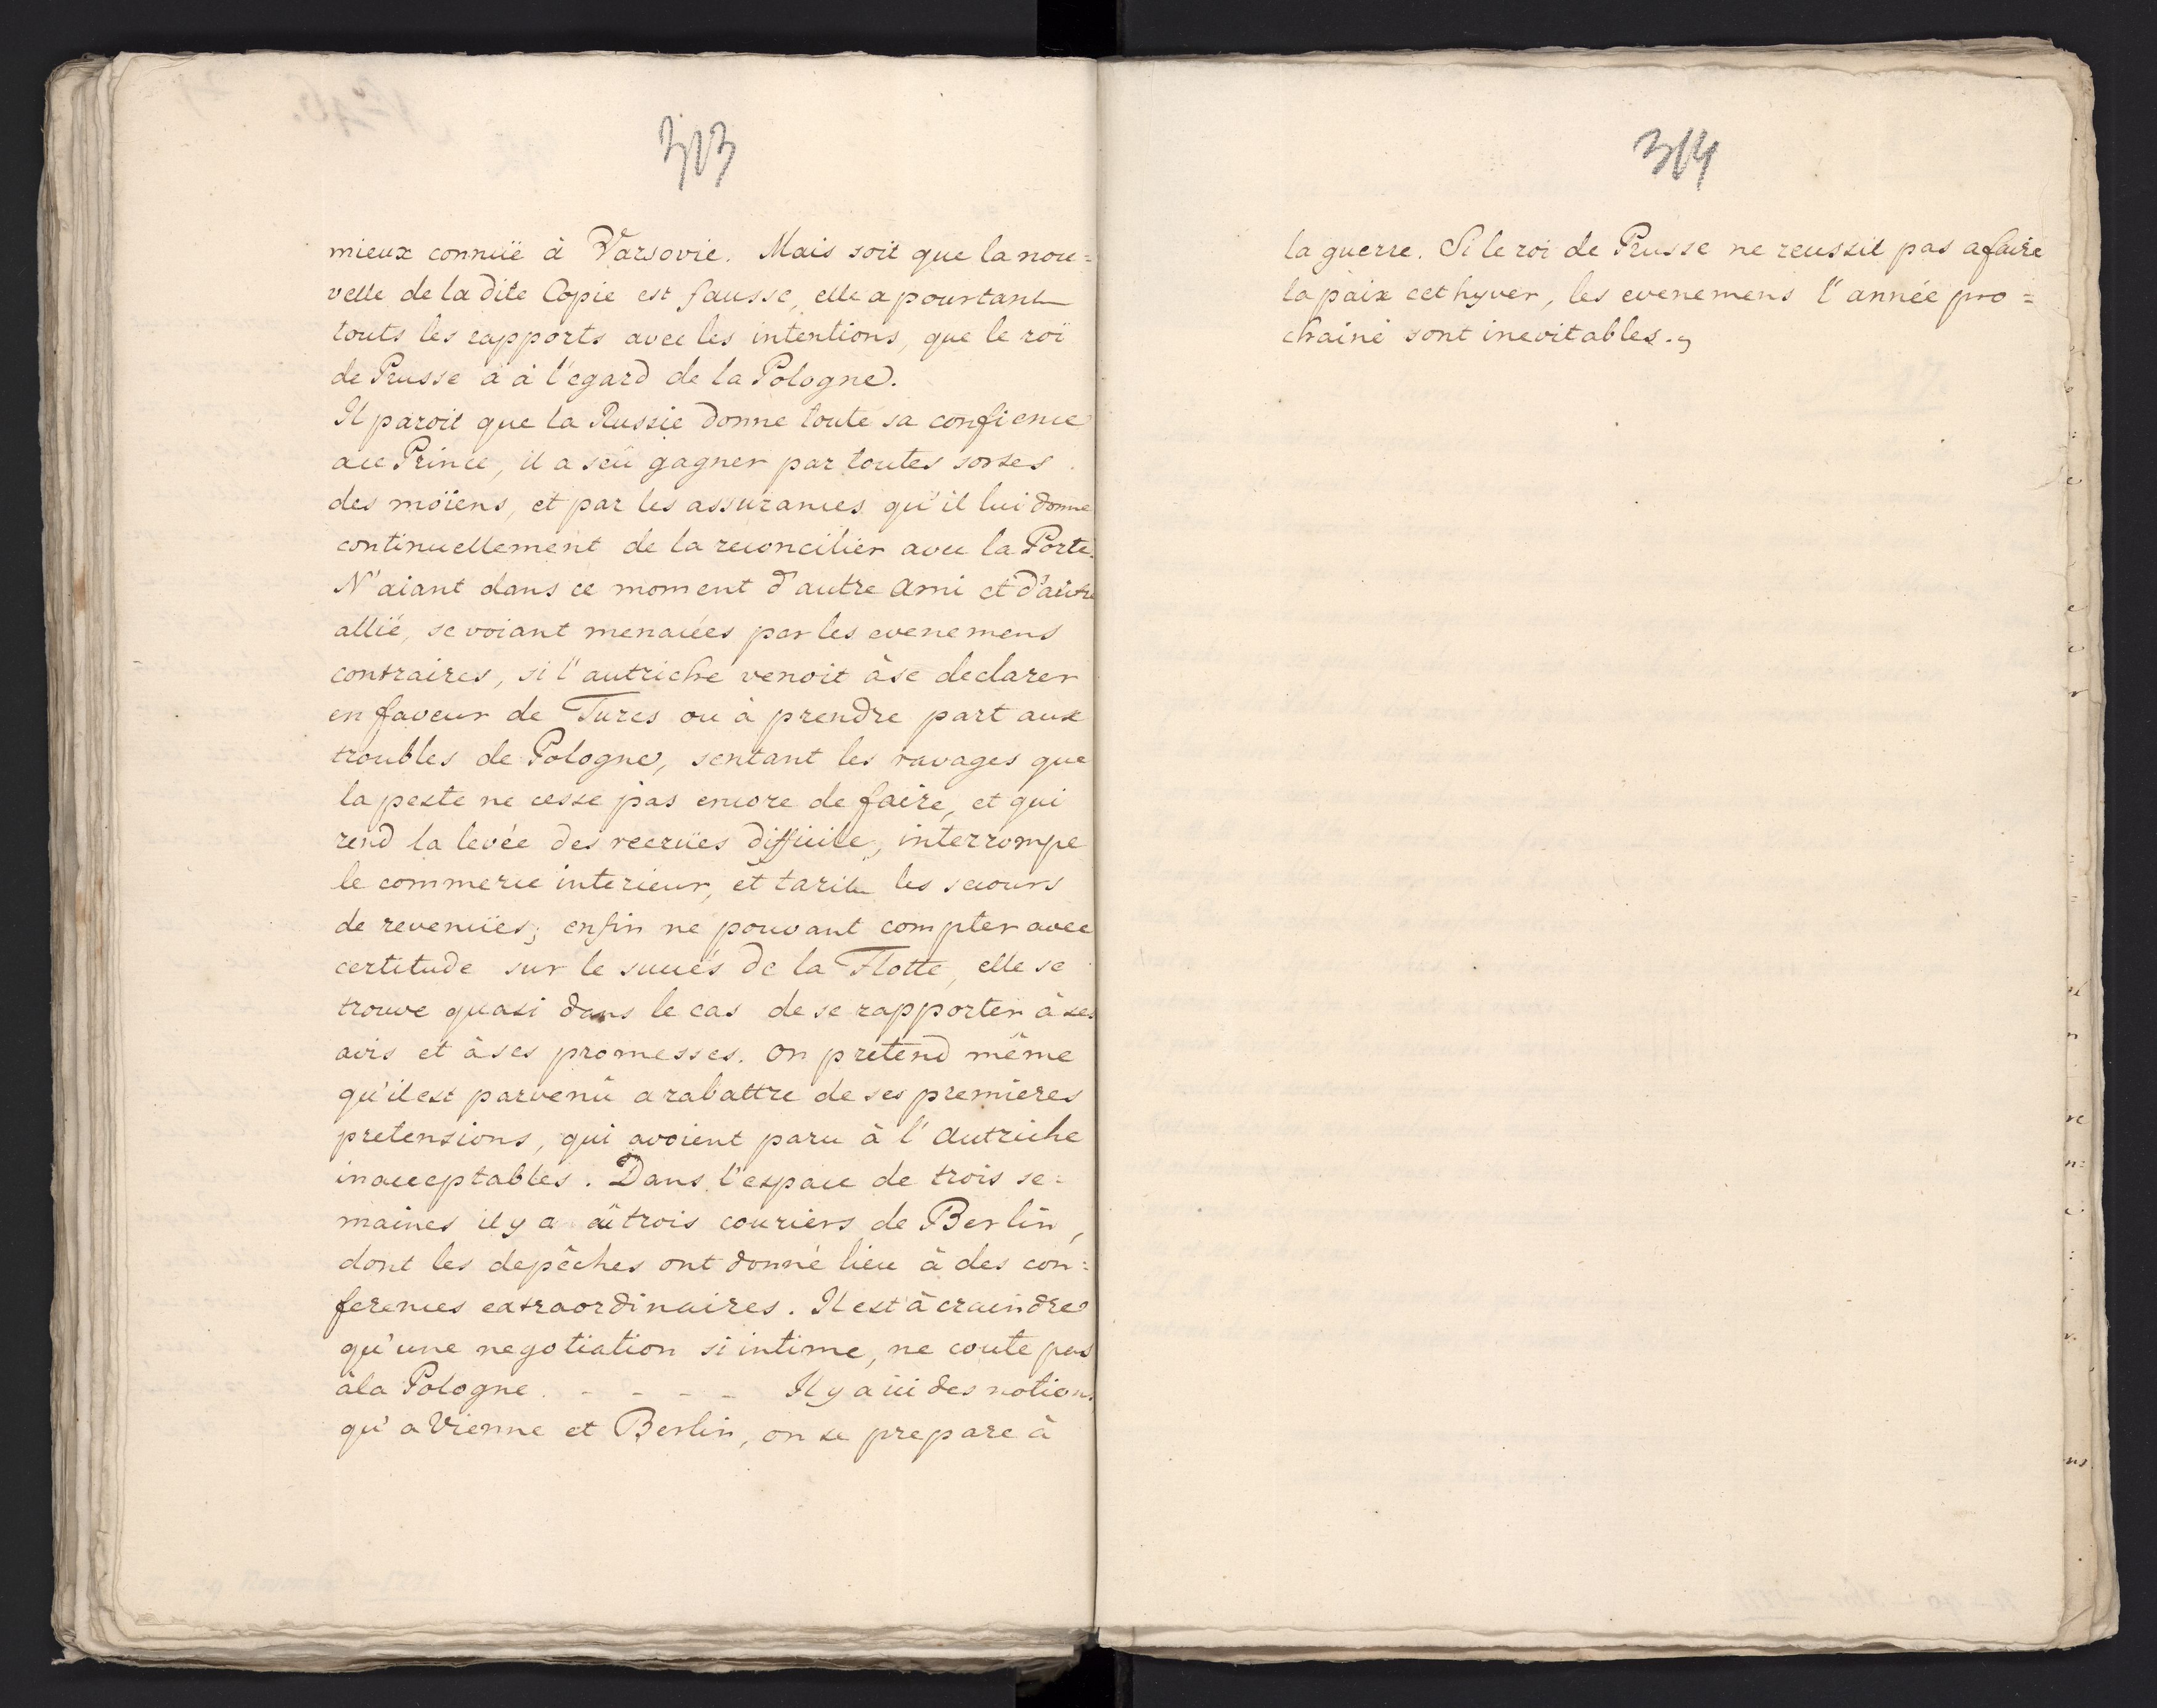 313
mieux connuë à Varsovie. Mais soit que la nou=
velle de la dite Copie est fausse, elle a pourtant
touts les rapports avec les intentions, que le roï
de Prusse a à l'egard de la Pologne.
Il paroit que la Russie donne toute sa confience
a ce Prince, il a seû gagner par toutes sortes
des moïens, et par les assurances qu'il lui donne
continuellement de la reconcilier avec la Porte.
N'aiant dans ce moment d'autre Ami et d'autre
allié, se voiant menacées par les evenemens
contraires, si l'autriche venoit à se declarer
en faveur de Turcs ou à prendre part aux
troubles de Pologne, sentant les ravages que
la peste ne cesse pas encore de faire, et qui
rend la levée des recruës difficile, interrompe
le commerce interieur, et tarit les secours
de revenuës; enfin ne pouvant compter avec
certitude sur le succés de la Flotte, elle se
trouve quasi dans le cas de se rapporter à ses
avis et à ses promesses. On pretend même
qu'il est parvenû a rabattre de ses premieres
pretensions, qui avoient paru à l'Autriche
inacceptables. Dans l'espace de trois se=
maines il y a eû trois couriers de Berlin,
dont les depêches ont donné lieu à des con=
ferences extraordinaires. Il est à craindre
qu'une negotiation si intime, ne coute pas
à la Pologne. - - - - Il y a ici des notions
qu'a Vienne et Berlin, on se prepare à
314
la guerre. Si le roi de Prusse ne reussit pas a faire
la paix cet hyver, les evenemens l'année pro=
chaine sont inevitables.